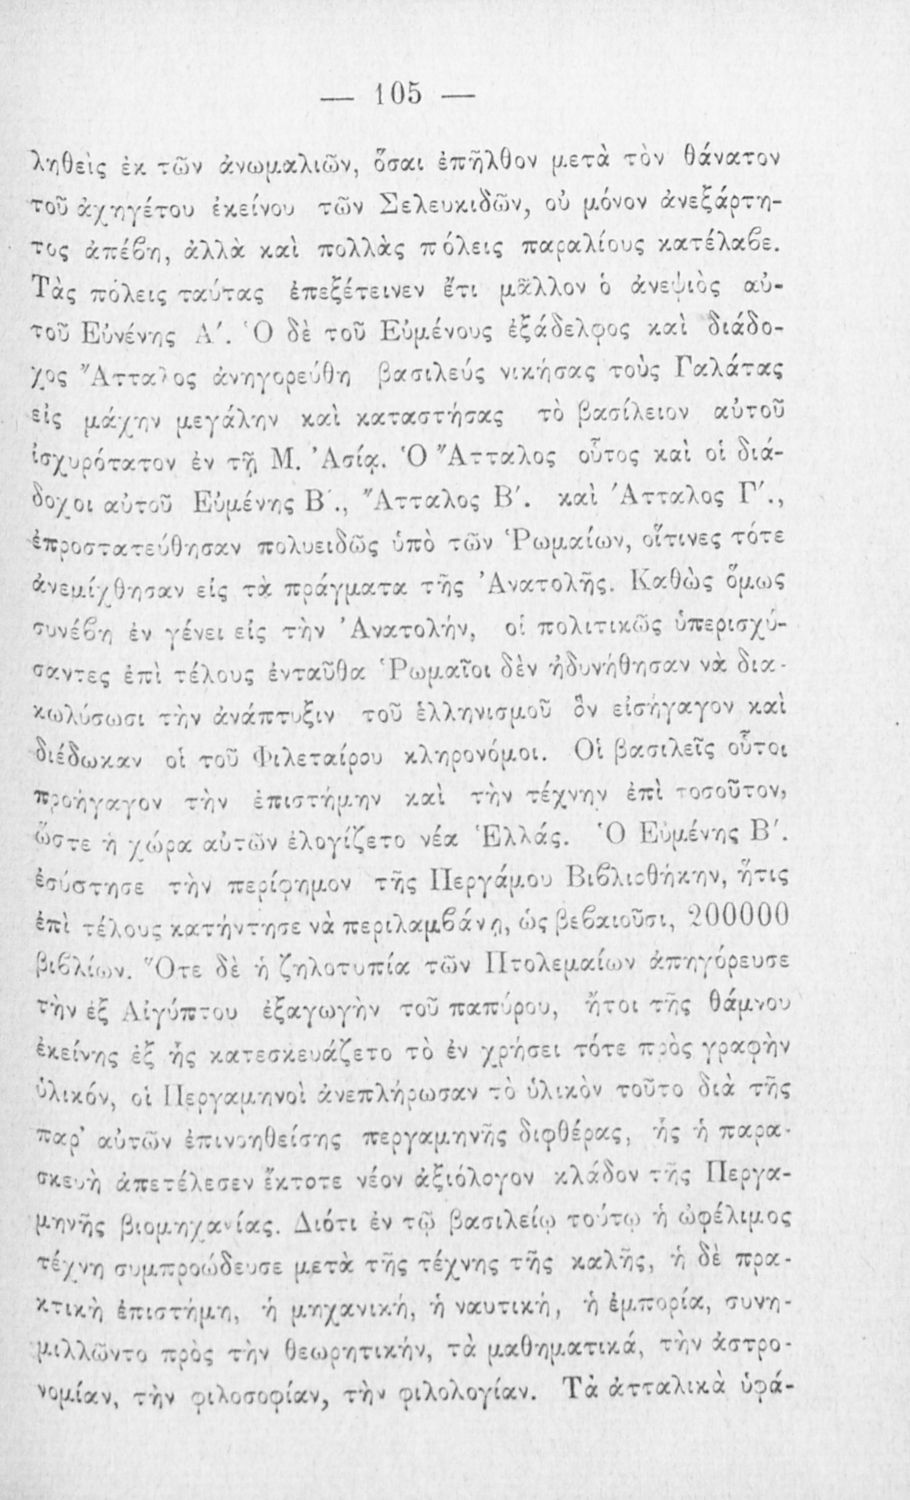 — 105 —
ληθεὶς ἐκ τῶν ἀνωμαλιῶν, ὅσαι ἐπῆλθον μετὰ τὸν θάνατον
τοῦ ἀχηγέτου ἐκείνου τῶν Σελευκιδῶν, οὐ μόνον ἀνεξάρτη-
τος ἀπέβη, ἀλλὰ καὶ πολλὰς πόλεις παραλίους κατέλαβε.
Τὰς πόλεις ταύτας ἐπεξέτεινεν ἔτι μᾶλλον ὁ ἀνεψιὸς αὐ-
τοῦ Εὐνένης Α΄. Ὁ δὲ τοῦ Εὐμένους ἐξάδελφος καὶ διάδο-
χος Ἄτταλος ἀνηγορεύθη βασιλεύς νικήσας τοὺς Γαλάτας
εἰς μάχην μεγάλην καὶ καταστήσας τὸ βασίλειον αὐτοῦ
ἰσχυρότατον ἐν τῇ Μ. Ἀσίᾳ. Ὁ Ἄτταλος οὗτος καὶ οἱ διά-
δοχοι αὐτοῦ Εὐμένης Β΄., Ἄτταλος Β΄. καὶ Ἄτταλος Γ΄.,
ἐπροστατεύθησαν πολυειδῶς ὑπὸ τῶν Ῥωμαίων, οἵτινες τότε
ἀνεμίχθησαν εἰς τὰ πράγματα τῆς Ἀνατολῆς. Καθὼς ὅμως
συνέβη ἐν γένει εἰς τὴν Ἀνατολήν, οἱ πολιτικῶς ὑπερισχύ-
σαντες ἐπὶ τέλους ἐνταῦθα Ῥωμαῖοι δὲν ἠδυνήθησαν νὰ δια-
κωλύσωσι τὴν ἀνάπτυξιν τοῦ ἑλληνισμοῦ ὃν εἰσήγαγον καὶ
διέδωκαν οἱ τοῦ Φιλεταίρου κληρονόμοι. Οἱ βασιλεῖς οὗτοι
προήγαγον τὴν ἐπιστήμην καὶ τὴν τέχνην ἐπὶ τοσοῦτον,
ὥστε ἡ χώρα αὐτῶν ἐλογίζετο νέα Ἑλλάς. Ὁ Εὐμένης Β΄.
ἐσύστησε τὴν περίφημον τῆς Περγάμου Βιβλιοθήκην, ἥτις
ἐπὶ τέλους κατήντησε νὰ περιλαμβάνῃ, ὡς βεβαιοῦσι, 200000
βιβλίων. Ὅτε δὲ ἡ ζηλοτυπία τῶν Πτολεμαίων ἀπηγόρευσε
τὴν ἐξ Αἰγύπτου ἐξαγωγὴν τοῦ παπύρου, ἤτοι τῆς θάμνου
ἐκείνης ἐξ ἧς κατεσκευάζετο τὸ ἐν χρήσει τότε πρὸς γραφὴν
ὑλικόν, οἱ Περγαμηνοὶ ἀνεπλήρωσαν τὸ ὑλικὸν τοῦτο διὰ τῆς
παρ' αὐτῶν ἐπινοηθείσης περγαμηνῆς διφθέρας, ἧς ἡ παρα-
σκευὴ ἀπετέλεσεν ἔκτοτε νέον ἀξιόλογον κλάδον τῆς Περγα-
μηνῆς βιομηχανίας. Διότι ἐν τῷ βασιλείῳ τούτῳ ἡ ὠφέλιμος
τέχνη συμπροώδευσε μετὰ τῆς τέχνης τῆς καλῆς, ἡ δὲ πρα-
κτικὴ ἐπιστήμη, ἡ μηχανική, ἡ ναυτική, ἡ ἐμπορία, συνη-
μιλλῶντο πρὸς τὴν θεωρητικήν, τὰ μαθηματικά, τὴν ἀστρο-
νομίαν, τὴν φιλοσοφίαν, τὴν φιλολογίαν. Τὰ ἀτταλικὰ ὑφά-